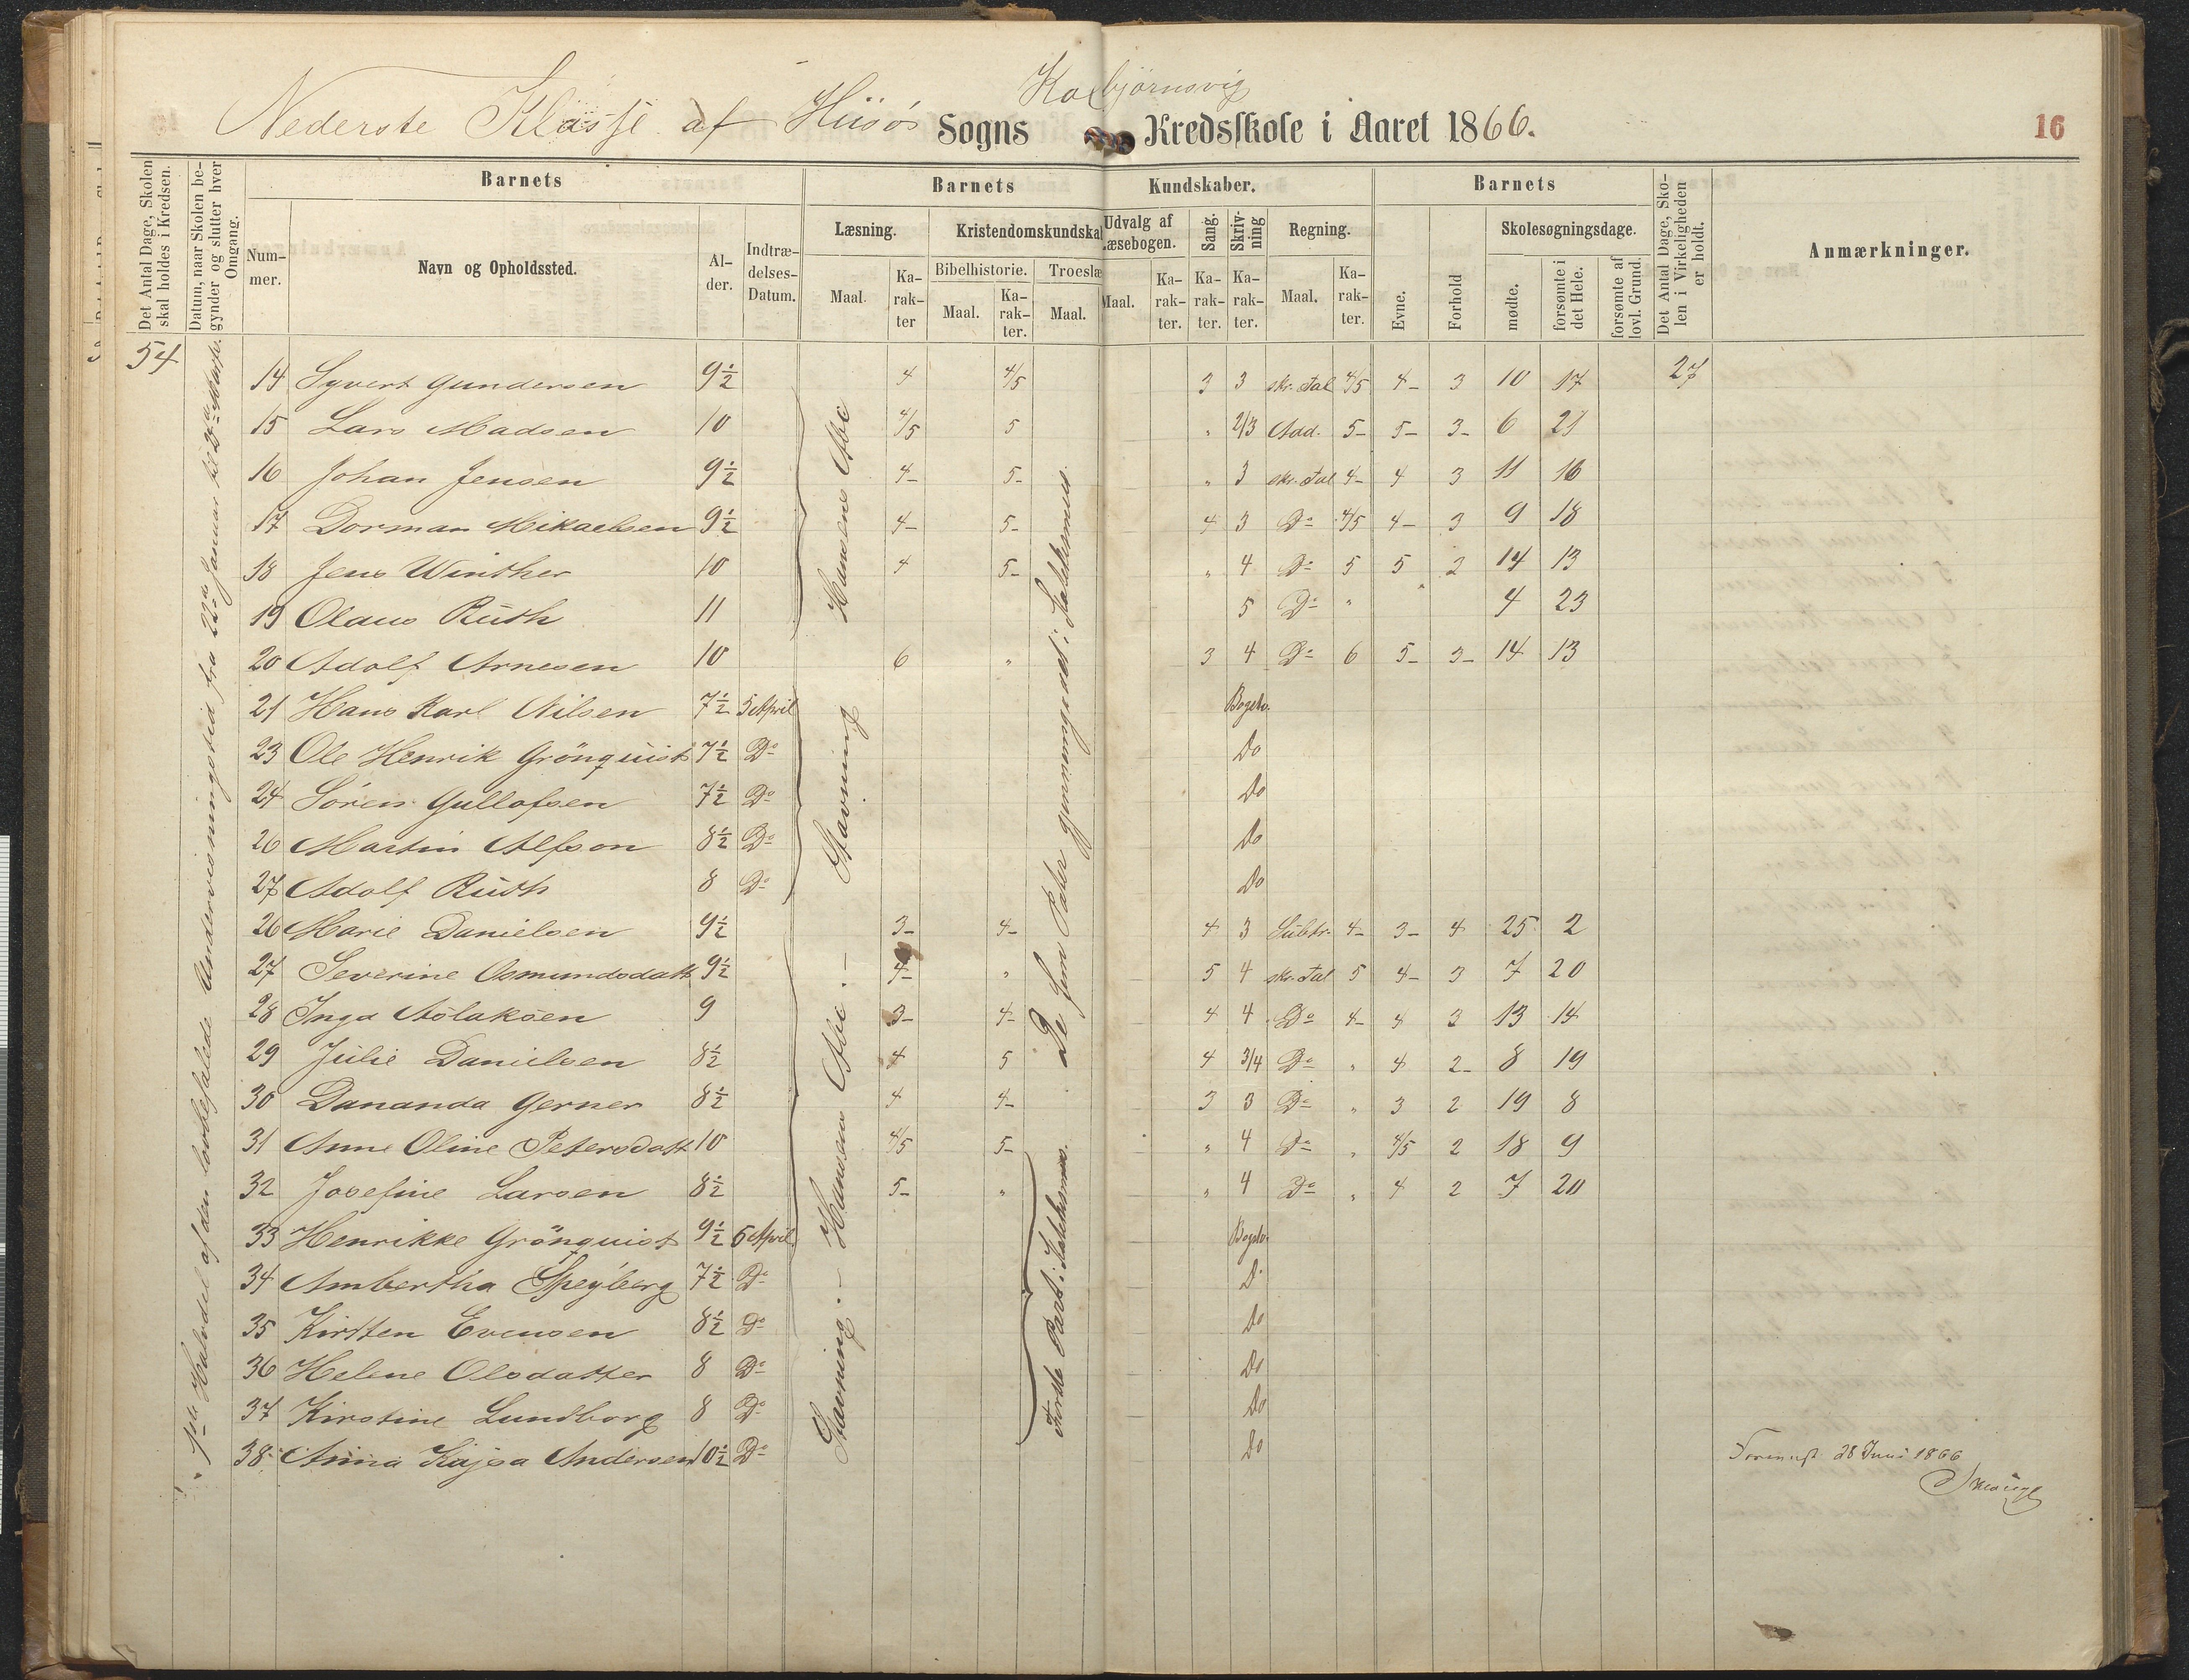 Kolbjörnsvig
Nederste Klasse af Hiisö Sogns Kredsskole i Aaret 1866.
16
Det Antal Dage, Skolen skal holdes i Kredsen.
Datum, naar Skolen begynder og slutter hver Omgang.
Barnets
Barnets
Kundskaber.
Barnets
Det Antal Dage, Skolen i Virkeligheden er holdt.
Anmærkninger.
Nummer.
Navn og Opholdssted.
Alder.
Indtrædelses-Datum.
Læsning.
Kristendomskundska
Udvalg af Læsebogen.
Sang.
Skrivning
Regning.
Evne.
Forhold
Skolesøgningsdage.
Bibelhistorie.
Troeslæ
Maal.
Karakter
Maal.
Karakter.
Maal.
Maal.
Karakter.
Karakter.
Karakter.
Maal.
Karakter.
mødte.
forsømte i det Hele.
forsømte af lovl. Grund.
54
1ste Halvdel af den lovbefalede Undervisningstid fra 22de Januar til 23de Marts.
14 Syvert Gundersen 9½ 4 4/5 3 3 skr. Tal 4/5 4- 3 10 17 27
15 Lars Madsen 10 4/5 5 " 2/3 Add. 5- 5- 3- 6 21
16 Johan Jensen 9½ 4- 5- " 3 skr. Tal 4- 4 3 11 16
17 Dorman Mikaelsen 9½ 4- 5- 4 3 Do 4/5 4- 3 9 18
18 Jens Winther 10 4 5- " 4 Do 5 5 2 14 13
19 Olaus Ruth 11 5 Do " 4 23
20 Adolf Arnesen 10 6 " 3 4 Do 6 5- 3- 14 13
21 Hans Karl Nilsen 7½ 5 April Bogstv.
23 Ole Henrik Grönquist 7½ Do Do
24 Sören Gullofsen 7½ Do Do
26 Martin Alfson 8½ Do Do
27 Adolf Ruth 8 Do Do
26 Marie Danielsen 9½ 3- 4- 4 3 Subtr. 4- 3- 4 25 2
27 Severine Osmundsdatt 9½ 4- " 5 4 skr. Tal 5 4- 3 7 20
28 Inga Aslaksen 9 3- 4- 4 4 Do 4- 4 3 13 14
29 Julie Danielsen 8½ 4 5 4 3/4 Do " 4 2- 8 19
30 Dananda Gerner 8½ 4 4- 3 3 Do " 3 2 19 8
31 Anne Oline Petersdatt 10 4/5 5- " 4 Do " 4/5 2 18 9
32 Josefine Larsen 8½ 5- " " 4 Do " 4 2 7 20
33 Henrikke Grönquist 9½ 5 April Bogstv.
34 Ambertha Speyberg 7½ Do Do
35 Kirsten Evensen 8½ Do Do
36 Helene Olsdatter 8 Do Do
37 Kirstine Lundborg 8 Do Do
38 Anna Kajsa Andersen 10½ Do Do
Hansens Abc
Stavning
Stavning. - Hansens Abc. -
De fem Parter gjennemgaaet i Katekismus.
Förste Part i Katekismus.
28 Juni 1866